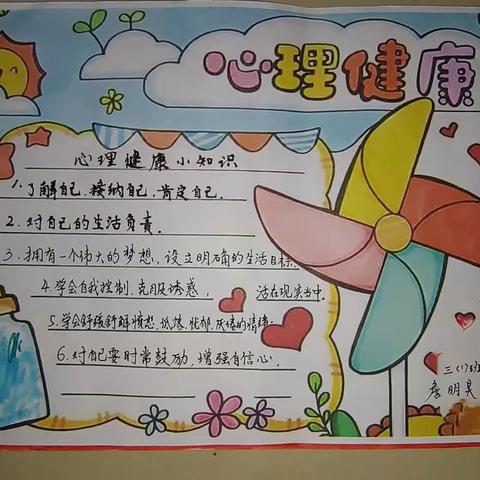 心理健康
心理健康小知识
1.了解自己.接纳自己.肯定自己.
2.对自己的生活负责.
3.拥有一个伟大的梦想.设立明确的生活目标.
4.学会自我控制.克服诱惑,活在现实当中.
5.学会舒缓舒解愤怒.低落.忧郁.厌倦的情绪.
6.对自己要时常鼓励.增强自信心.
三(1)班
明昊